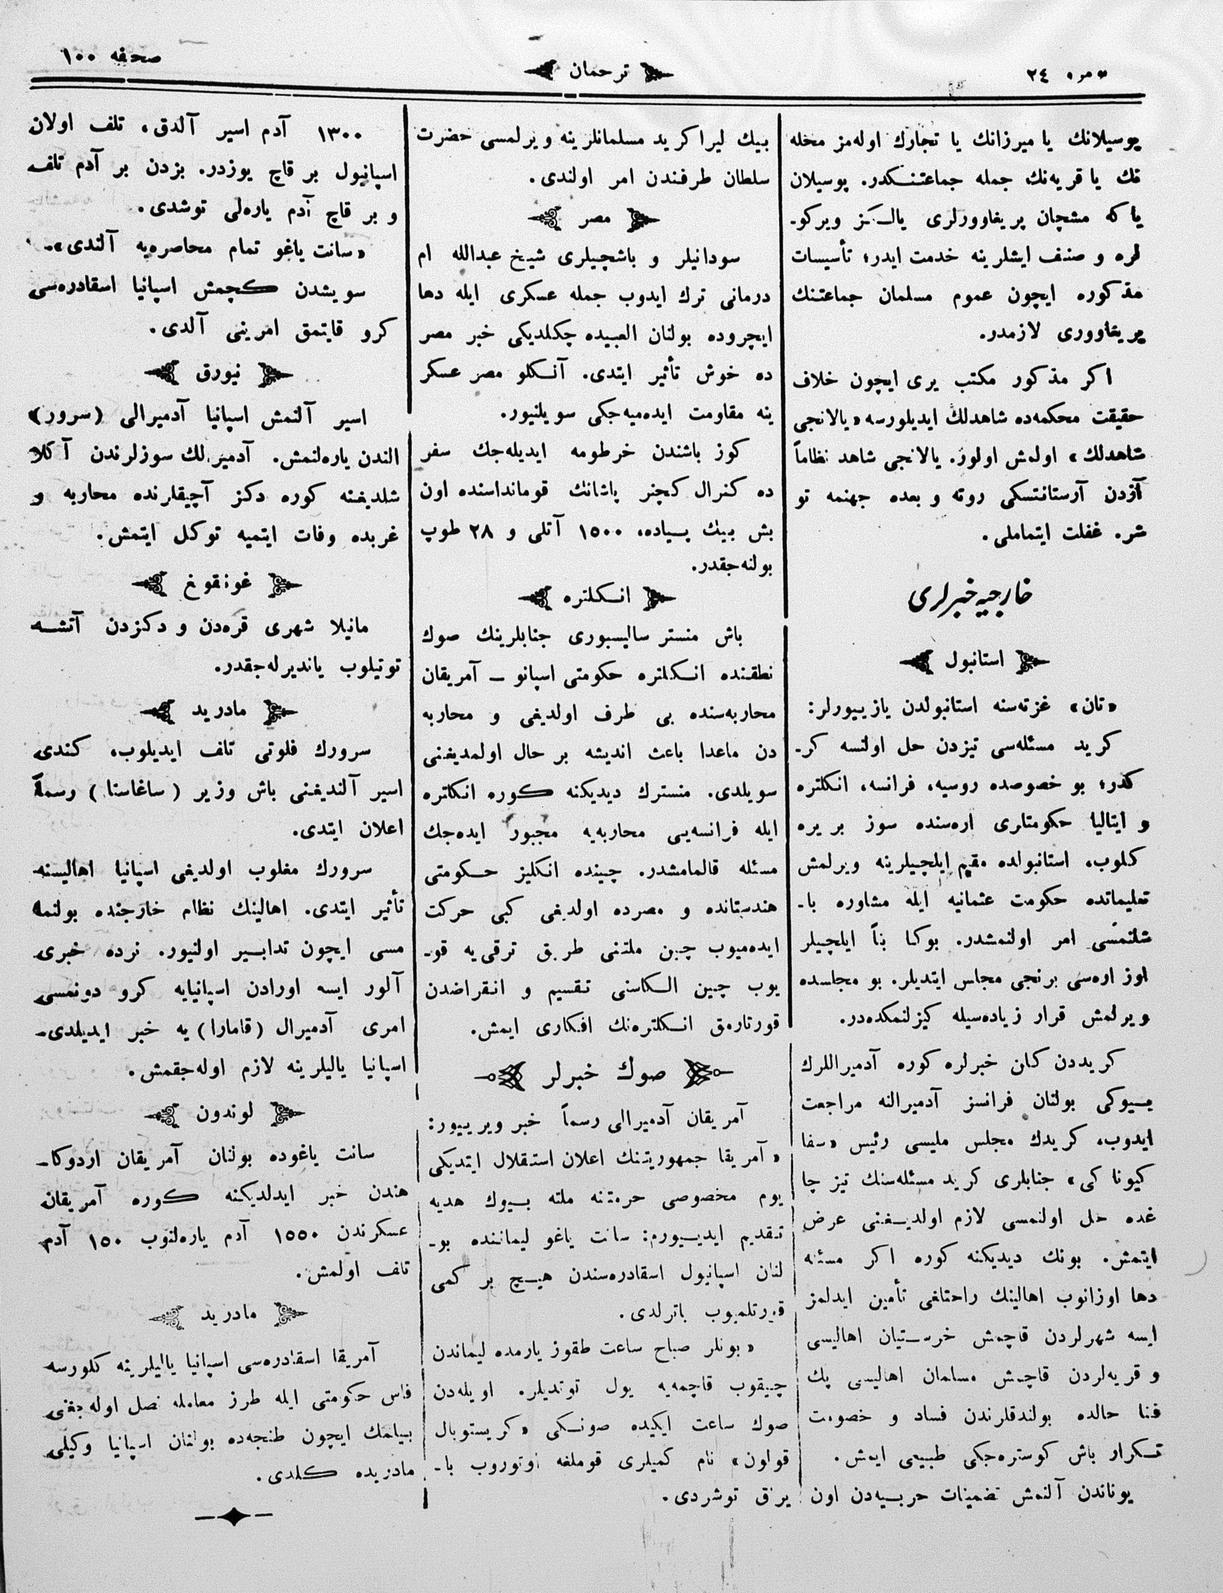 نمره ٢٤
ترجمان
صحفه ١٠٠
پوسیلانك یا میرزانك یا تجارك اوله‌مز محله
نك یا قریه‌نك جمله جماعتنكدر. پوسیلان
یا كه مشچان پریغاوورلری یالكز ویركو-
لره و صنف ایشلرینه خدمت ایدر؛ تأسیسات
مذكوره ایچون عموم مسلمان جماعتنك
پریغاووری لازمدر.
اكر مذكور مكتب یری ایچون خلاف
حقیقت محكمه‌ده شاهدلك ایدیلورسه «یالانجی
شاهدلك» اولمش اولور. یالانجی شاهد نظاماً
آزدن آرستانتسكی روته و بعده جهنمه تو
شر. غفلت ایتماملی.
خارجیه خبرلری
استانبول
«تان» غزته‌سنه استانبولدن یازییورلر:
كرید مسئله‌سی تیزدن حل اولنسه كر-
كدر؛ بو خصوصده روسیه، فرانسه، انكلتره
و ایتالیا حكومتلری اره‌سنده سوز بریره
كلوب، استانبولده مقیم ایلچیلرینه ویرلمش
تعلیماتده حكومت عثمانیه ایله مشاوره با-
شلنمسی امر اولنمشدر. بوكا بناً ایلچیلر
اوز اره‌سی برنجی مجلس ایتدیلر. بو مجلسده
ویرلمش قرار زیاده‌سیله كیزلنمكده‌در.
كریددن كلن خبرلره كوره آدمیراللرك
بیوكی بولنان فرانسز آدمیرالنه مراجعت
ایدوب، كریدك مجلس ملیسی رئیس «سفا
كیونا كی» جنابلری كرید مسئله‌سنك تیز چا
غده حل اولنمسی لازم اولدیغنی عرض
ایتمش. بونك دیدیكنه كوره اكر مسئله
دها اوزانوب اهالینك راحتلغی تأمین ایدلمز
ایسه شهرلردن قاچمش خرستیان اهالیسی
و قریه‌لردن قاچمش مسلمان اهالیسی پك
فنا حالده بولندقلرندن فساد و خصومت
تكرار باش كوستره‌جكی طبیعی ایمش.
یوناندن آلنمش تضمینات حربیه‌دن اون
بیك لیرا كرید مسلمانلرینه ویرلمسی حضرت
سلطان طرفندن امر اولندی.
مصر
سودانیلر و باشچیلری شیخ عبدالله ام
درمانی ترك ایدوب جمله عسكری ایله دها
ایچروده بولنان العبیده چكلدیكی خبر مصر
ده خوش تأثیر ایتدی. آنكلو مصر عسكر
ینه مقاومت ایده‌میه‌جكی سویلنیور.
كوز باشندن خرطومه ایدیله‌جك سفر
ده كنرال كچنر پاشانك قومانداسنده اون
بش بیك پیاده، ١٥٠٠ آتلی و ٢٨ طوپ
بولنه‌جقدر.
انكلتره
باش منستر سالیسبوری جنابلرینك صوك
نطقنده انكلتره حكومتی اسپانو ـ آمریقان
محاربه‌سنده بی طرف اولدیغی و محاربه
دن ماعدا باعث اندیشه بر حال اولمدیغنی
سویلدی. منسترك دیدیكنه كوره انكلتره
ایله فرانسه‌یی محاربه‌یه مجبور ایده‌جك
مسئله قالمامشدر. چینده انكلیز حكومتی
هندستانده و مصرده اولدیغی كبی حركت
ایده‌میوب چین ملتنی طریق ترقی‌یه قو-
یوب چین الكاسنی تقسیم و انقراضدن
قورتارمق انكلتره‌نك افكاری ایمش.
صوك خبرلر
آمریقان آدمیرالی رسماً خبر ویرییور:
«آمریقا جمهوریتنك اعلان استقلال ایتدیكی
یوم مخصوصی حرمتنه ملته بیوك هدیه
تقدیم ایدییورم: سانت یاغو لیماننده بو-
لنان اسپانیول اسقادره‌سندن هیچ بر كمی
قورتلمیوب باترلدی.
«بونلر صباح ساعت طقوز یارمده لیماندن
چیقوب قاچمه‌یه یول توتدیلر. اویله‌دن
صوك ساعت ایكیده صونكی «كریستوبال
قولون» نام كمیلری قوملغه اوتوروب با-
یراق توشردی.
١٣٠٠ آدم اسیر آلدق، تلف اولان
اسپانیول بر قاچ یوزدر. بزدن بر آدم تلف
و بر قاچ آدم یاره‌لی توشدی.
«سانت یاغو تمام محاصره‌یه آلندی».
سویشدن كچمش اسپانیا اسقادره‌سی
كرو قایتمق امرینی آلدی.
نیورق
اسیر آلنمش اسپانیا آدمیرالی (سرور)
الندن یاره‌لنمش. آدمیرالك سوزلرندن آكلا
شلدیغنه كوره دكز آچیقلرنده محاربه و
غربده وفات ایتمیه توكل ایتمش.
غونقونغ
مانیلا شهری قره‌دن و دكزدن آتشه
توتیلوب یاندیرله‌جقدر.
مادرید
سرورك فلوتی تلف ایدیلوب، كندی
اسیر آلندیغنی باش وزیر (ساغاستا) رسماً
اعلان ایتدی.
سرورك مغلوب اولدیغی اسپانیا اهالیسنه
تأثیر ایتدی. اهالینك نظام خارجنده بولنمه
مسی ایچون تدابیر اولنیور. نرده خبری
آلور ایسه اورادن اسپانیایه كرو دونمسی
امری آدمیرال (قامارا) یه خبر ایدیلدی.
اسپانیا یالیلرینه لازم اوله‌جقمش.
لوندون
سانت یاغوده بولنان آمریقان اردوكا-
هندن خبر ایدلدیكنه كوره آمریقان
عسكرندن ١٥٥٠ آدم یاره‌لنوب ١٥٠ آدم
تلف اولمش.
مادرید
آمریقا اسقادره‌سی اسپانیا یالیلرینه كلورسه
فاس حكومتی ایله طرز معامله نصل اوله‌جغنی
بیلمك ایچون طنجه‌ده بولنان اسپانیا وكیلی
مادریده كلدی.